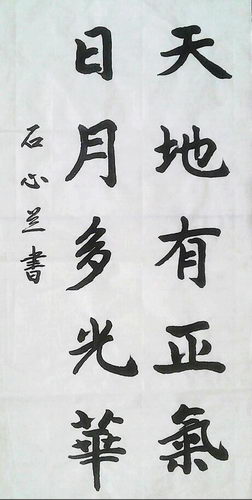 天地有正氣
日月多光華
石心兰書